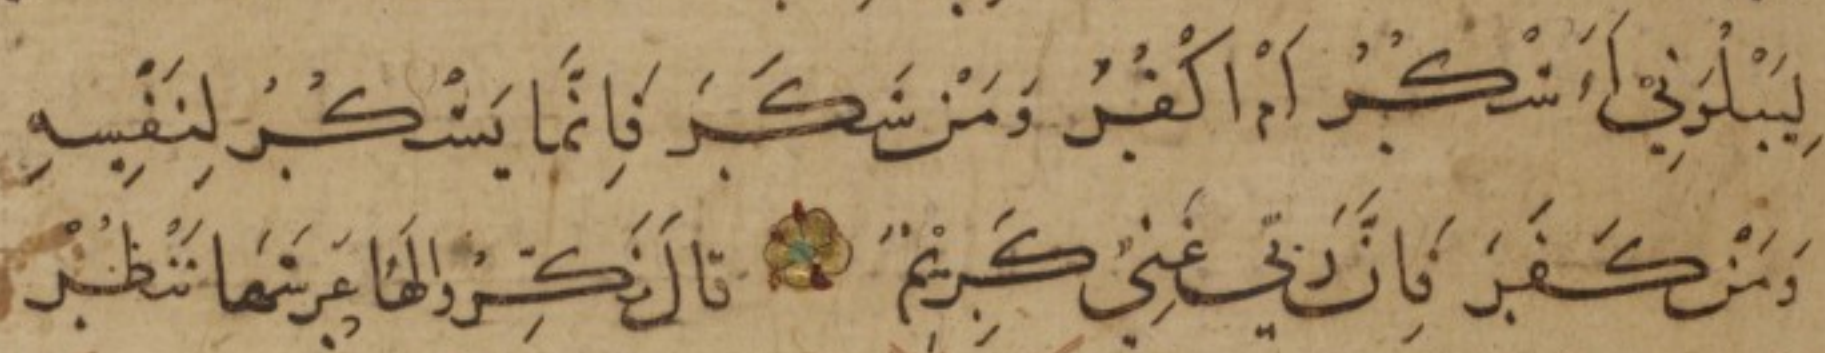 لِيَبْلُوَنِيْ أَأَشْكُرُ اَمْ اَكْفُرُ وَمَنْ شَكَرَ فَاِنَّمَا يَشْكُرُ لِنَفْسِهِ
وَمَنْ كَفَرَ فَاِنَّ رَبِّيْ غَنِيٌّ كَرِيْمٌ قَالَ نَكِّرُوا لَهَا عَرْشَهَا نَنْظُرْ